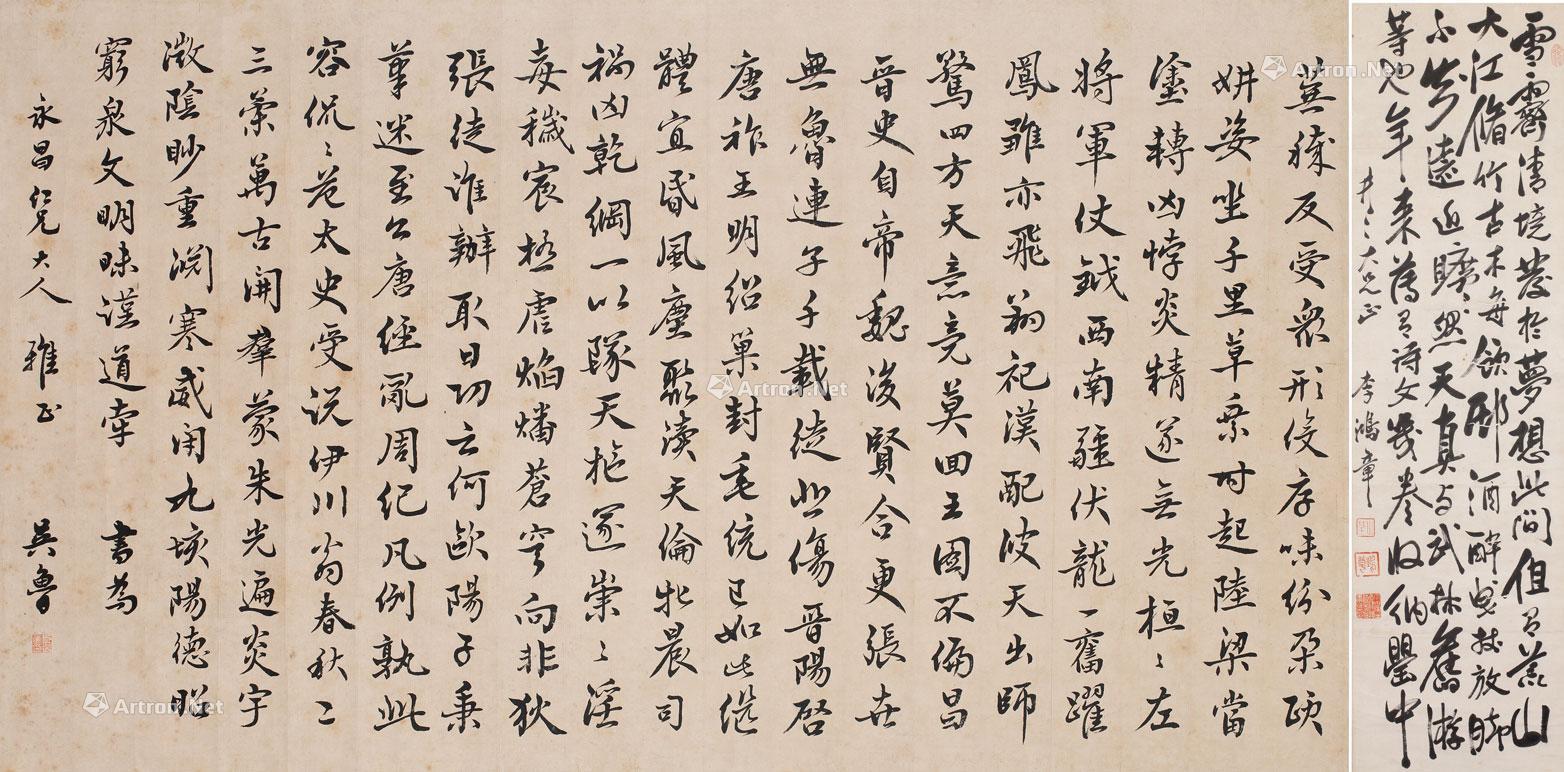 雪霽清境發於夢想此間但有荒山
大江脩竹古木每飲邨酒醉曳杖放腳
不知遠近曠然天真与武林舊游
等也年來薦有詩文幾卷收納罌中
井三大兄正 李鴻章
蕪穢反受眾形役厚味紛朵頤
妍姿坐千里草乘时起陸梁當
塗轉凶悖炎精遂無光桓〻左
將軍仗鉞西南疆伏龍一奮躍
鳳雛亦飛翔祀漢配彼天出師
驚四方天意竟莫回王圖不偏昌
晉史自帝魏後賢合更張世
無魯連子千載徒悲傷晉陽啓
唐祚王明紹巢封垂統已如此繼
體宜昏風麀聚瀆天倫牝晨司
禍凶乾綱一以隊天樞遂崇〻淫
毒穢宸極虐焰燔蒼穹向非狄
張徒誰辦取日功云何歐陽子秉
筆迷至公唐經亂周紀凡例孰此
容侃〻范太史受说伊川翁春秋二
三策萬古開羣蒙朱光遍炎宇
微陰眇重淵寒威閉九垓陽德昭
窮泉文明昧謹道牽 書為
永昌仁兄大人 雅正 吳魯
Artron.Net
Artron.Net
Artron.Net